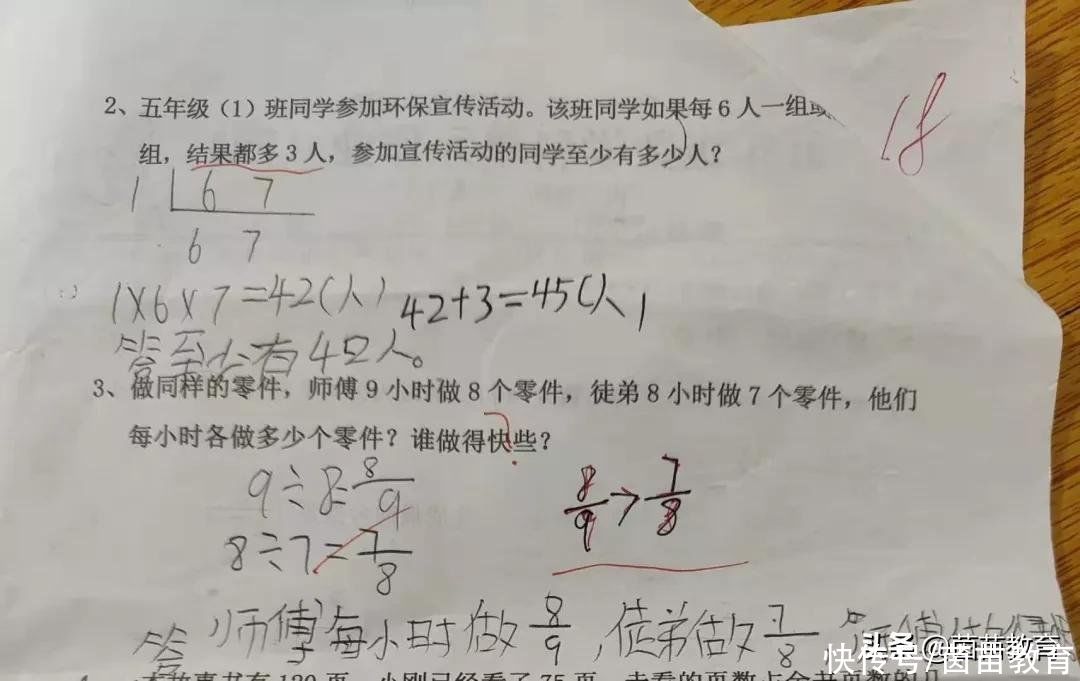 2、五年级（1）班同学参加环保宣传活动。该班同学如果每6人一组
18
组，结果都多3人，参加宣传活动的同学至少有多少人？
1 6 7
6 7
1×6×7=42(人) 42+3=45(人)
答至少有42人。
3、做同样的零件，师傅9小时做8个零件，徒弟8小时做7个零件，他们
每小时各做多少个零件？谁做得快些？
?
9÷8=8/9
8/9>7/8
8÷7=7/8
答 师傅每小时做8/9，徒弟做7/8
头条@茵苗教育
快传号/茵苗教育
本故事书有120页，小刚已经看了75页，未看的页数占全书页数的几